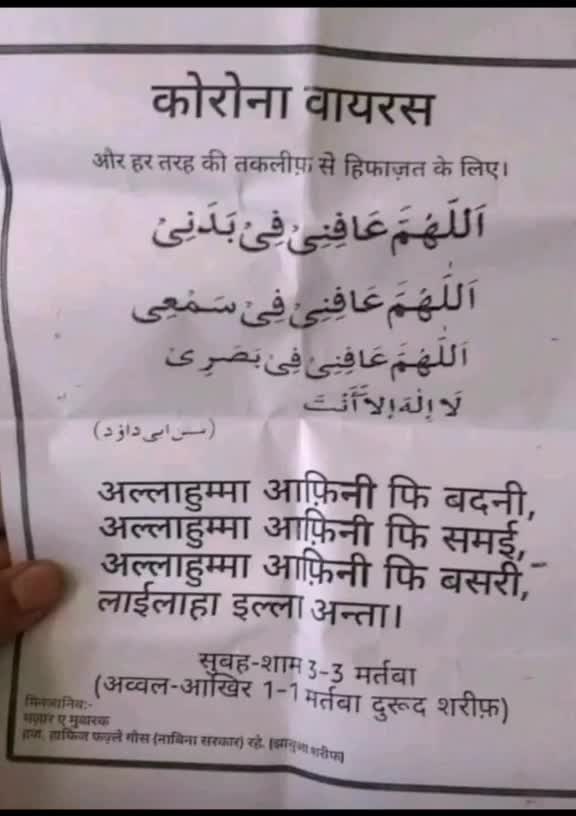 कोरोना वायरस
और हर तरह की तकलीफ़ से हिफाज़त के लिए।
اَللّٰهُمَّ عَافِنِیْ فِیْ بَدَنِیْ
اَللّٰهُمَّ عَافِنِیْ فِیْ سَمْعِی
اَللّٰهُمَّ عَافِنِیْ فِیْ بَصَرِیْ
لَا اِلٰهَ اِلَّا اَنْتَ
ابی داؤد)
अल्लाहुम्मा आफ़िनी फि बदनी,
अल्लाहुम्मा आफ़िनी फि समई,
अल्लाहुम्मा आफ़िनी फि बसरी,
लाईलाहा इल्ला अन्ता।
सुवह-शाम 3-3 मर्तबा
(अव्वल-आखिर 1-1 मर्तबा दुरूद शरीफ़)
मिनजानिब:-
मज़ार ए मुबारक
हज़. हाफिज फज़्ले गौस (नाबिना सरकार) रहे.